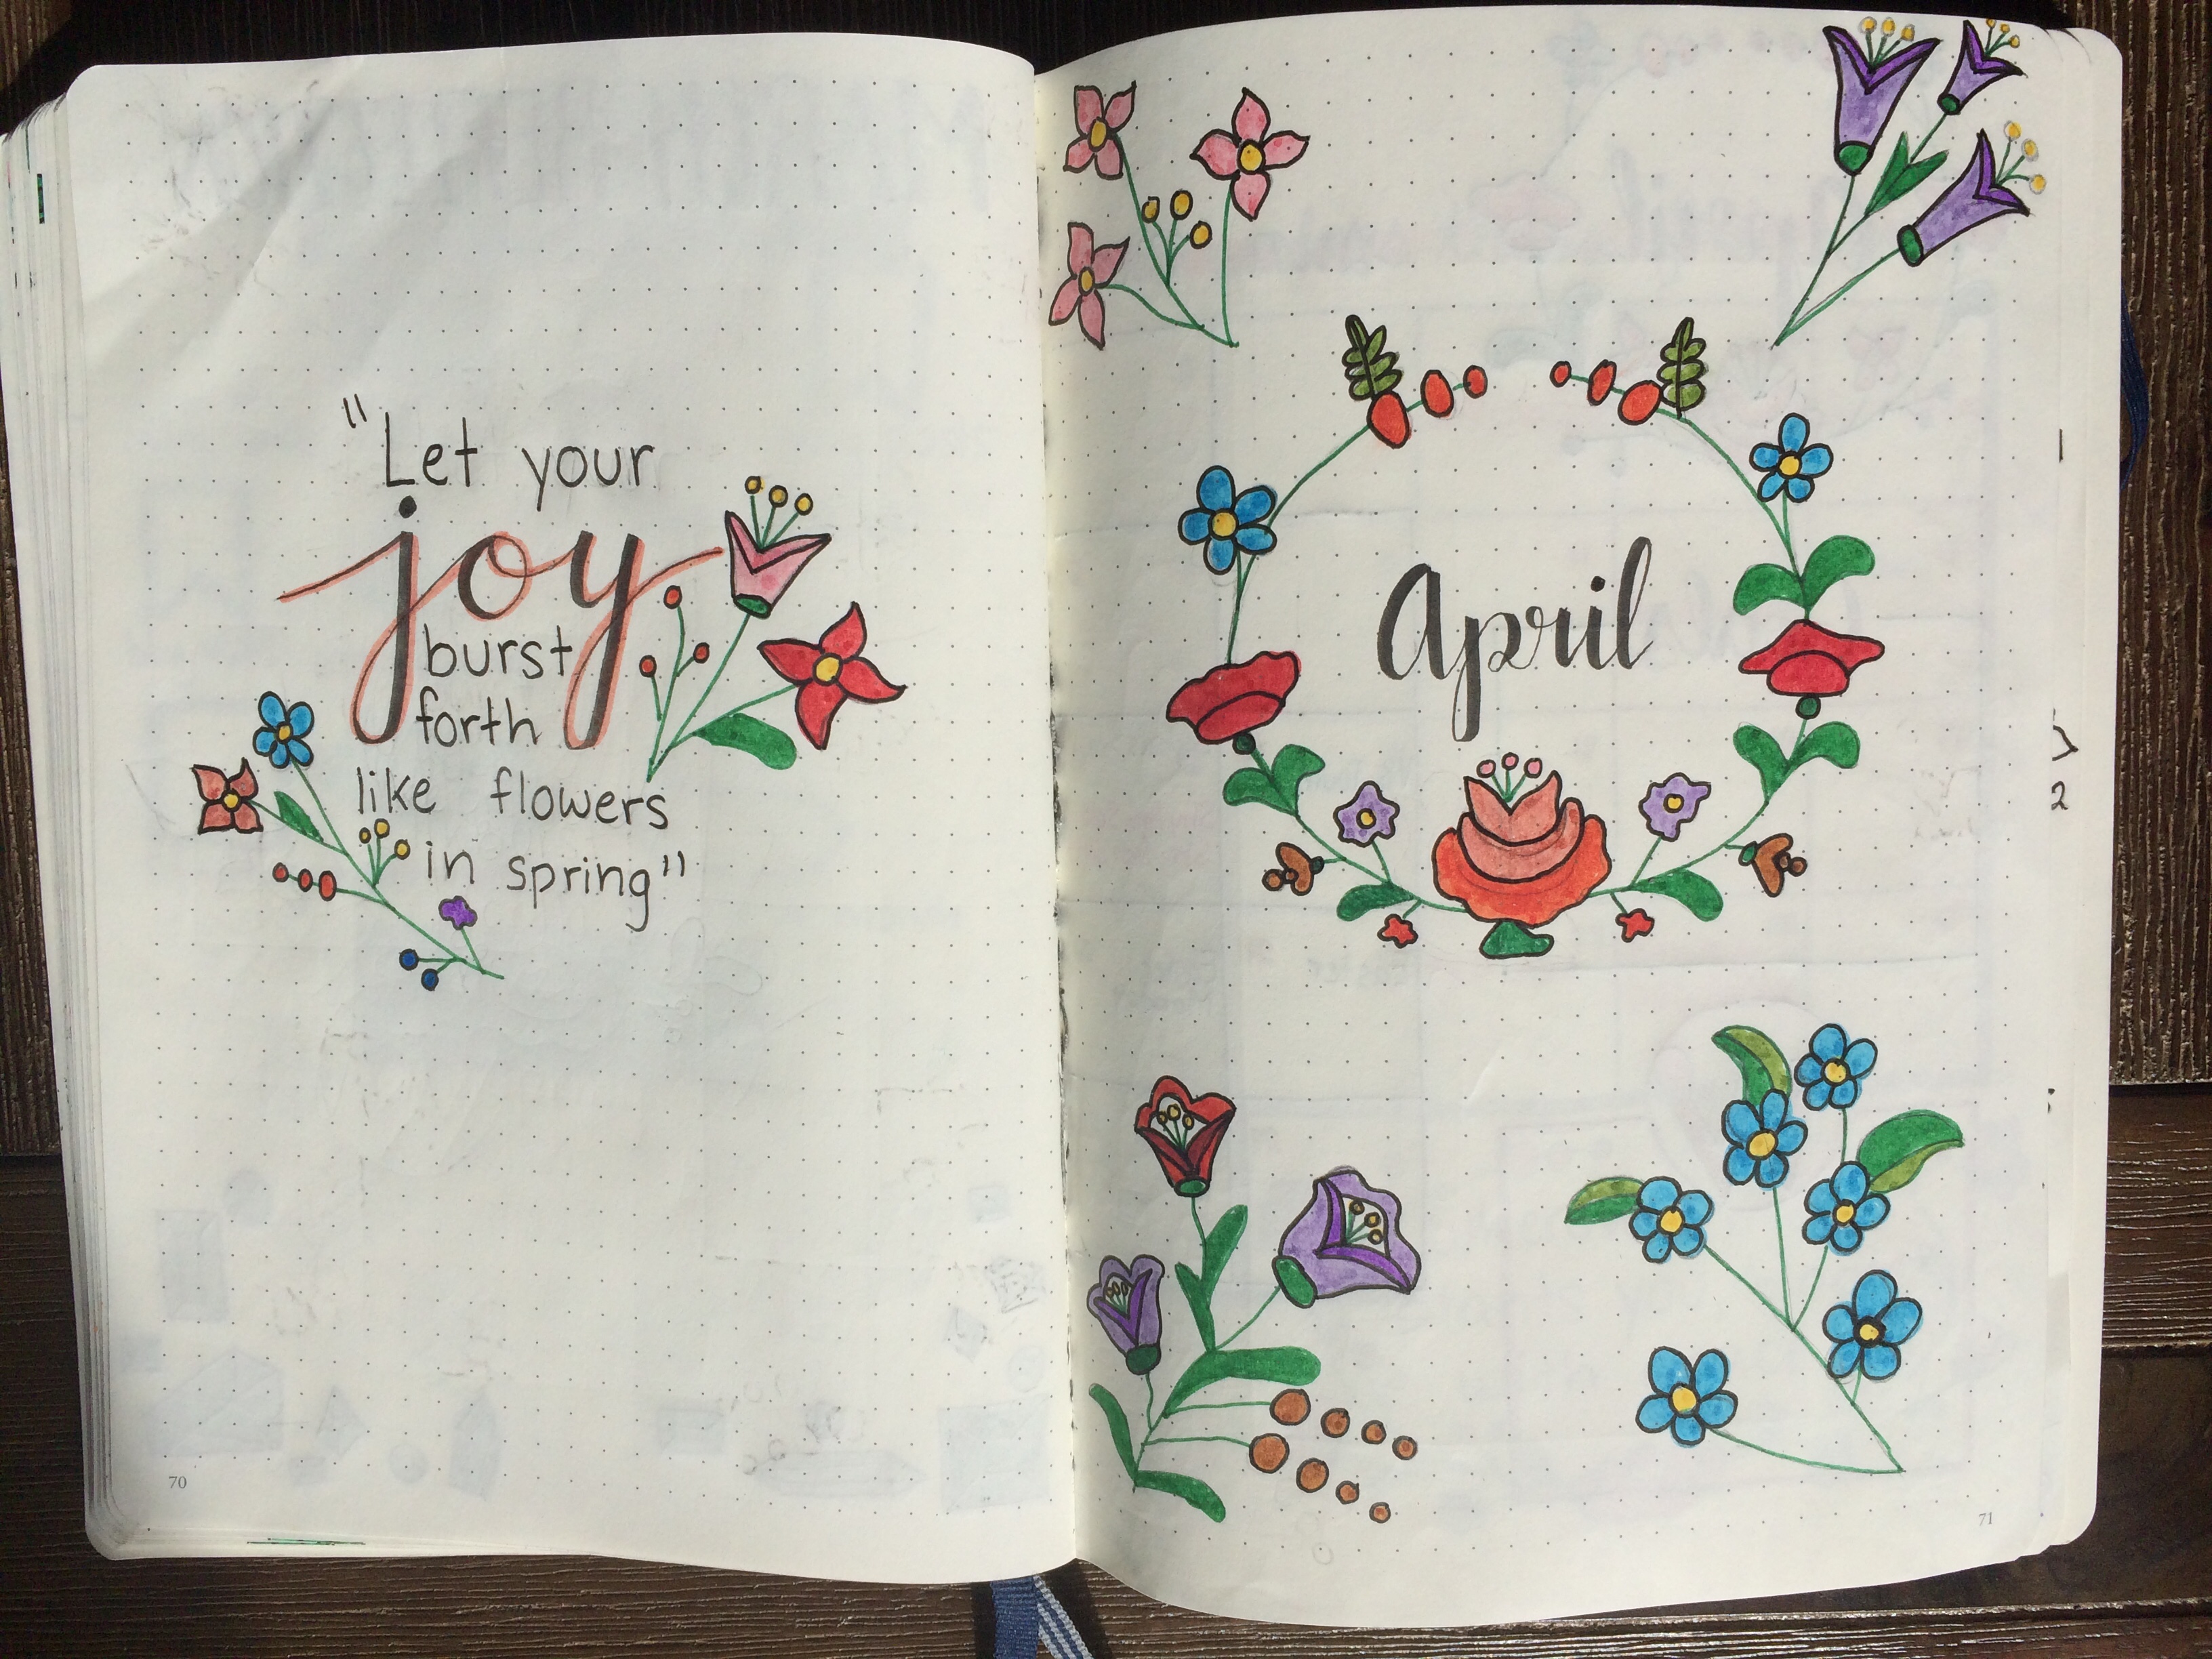 "Let your
joy
burst
forth
like flowers
in spring"
70
April
2
71